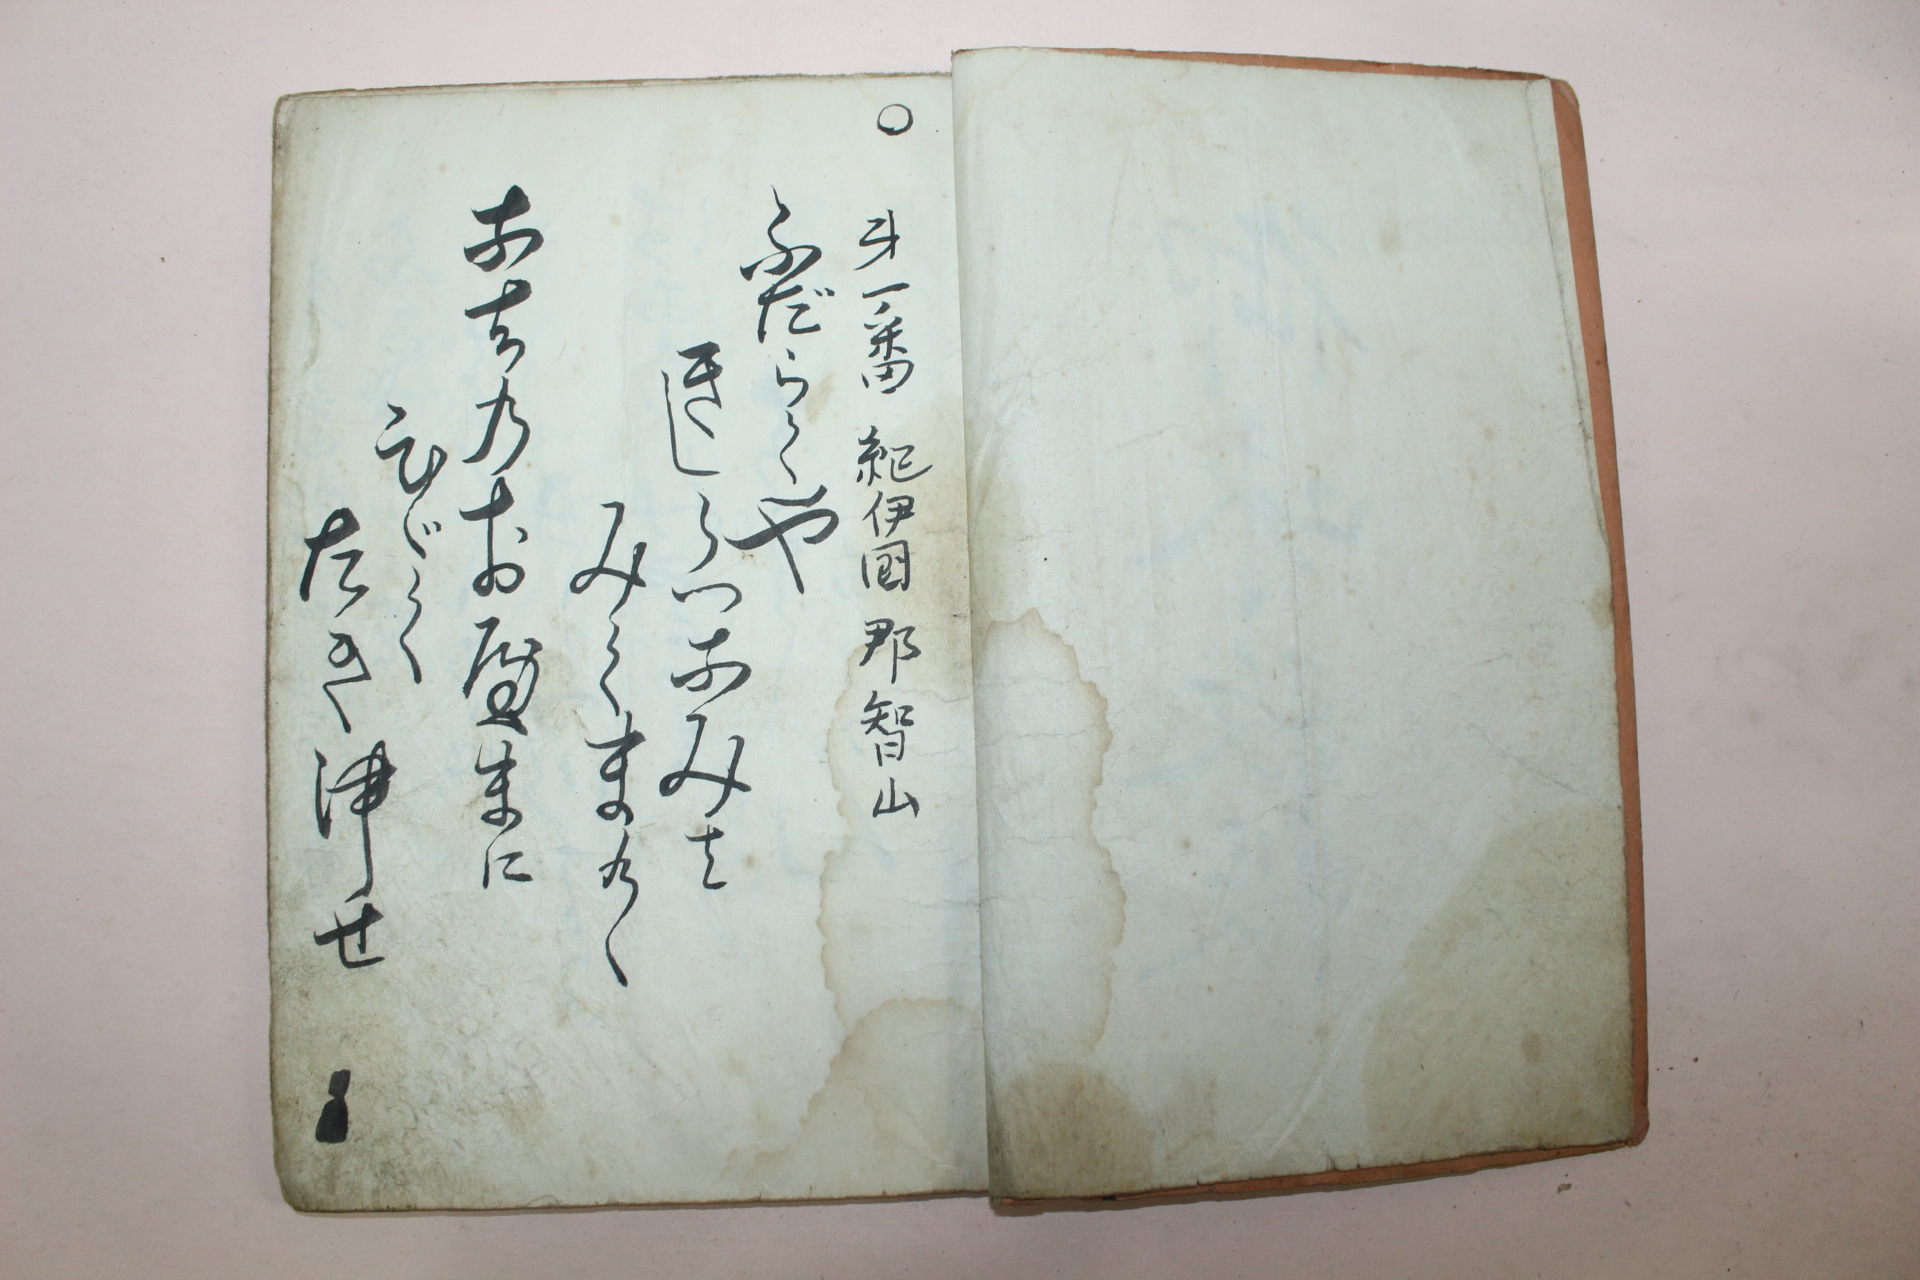 ○
第一番 紀伊国 那智山
ふだらくや
きしうつなみは
みくまのゝ
なちのおやまに
ひゞく
たき津せ